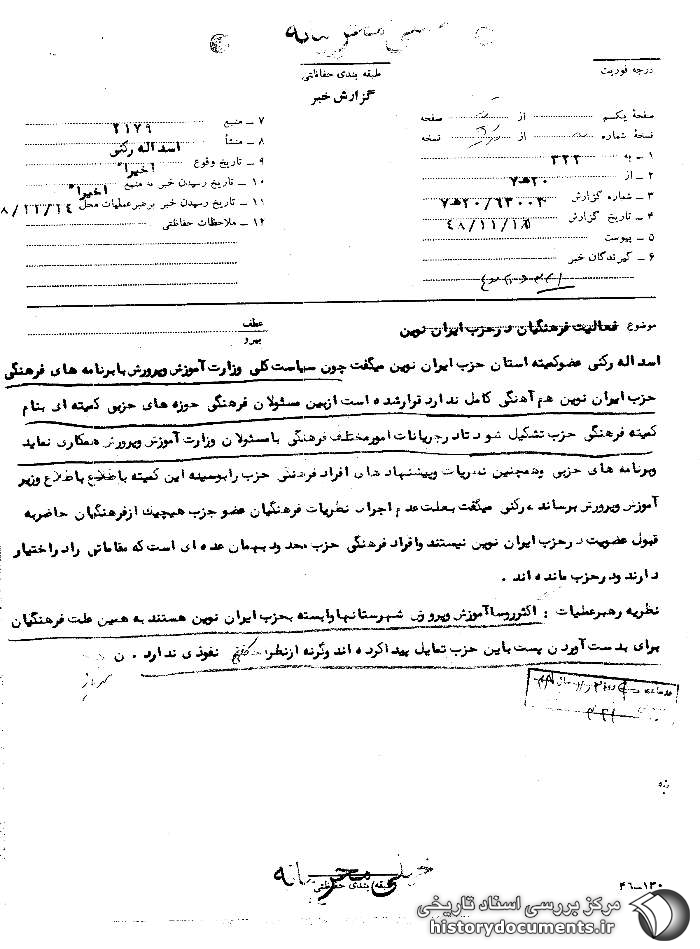 خیلی محرمانه
طبقه بندی حفاظتی
گزارش خبر
درجه فوریت
صفحهٔ یکم از صفحه
نسخهٔ شماره از نسخه
۱ ـ به ۳۲۲
۲ ـ از ۲۰هـ۷
۳ ـ شماره گزارش ۷هـ۲۰/۶۳۰۰۲
۴ ـ تاریخ گزارش ۴۸/۱۱/۱۸
۵ ـ پیوست
۶ ـ گیرندگان خبر
۷ ـ منبع ۲۱۷۹
۸ ـ منشأ اسداله رکنی
۹ ـ تاریخ وقوع اخیرا"
۱۰ ـ تاریخ رسیدن خبر به منبع اخیرا"
۱۱ ـ تاریخ رسیدن خبر برهبرعملیات محل ۸/۱۱/۱۴
۱۲ ـ ملاحظات حفاظتی
موضوع فعالیت فرهنگیان درحزب ایران نوین
عطف
پیرو
اسداله رکنی عضوکمیته استان حزب ایران نوین میگفت چون سیاست کلی وزارت آموزش وپرورش با برنامه های فرهنگی
حزب ایران نوین هم آهنگی کامل ندارد قرارشده است ازبین مسئولان فرهنگی حوزه های حزبی کمیته ای بنام
کمیته فرهنگی حزب تشکیل شود تادرجریانات امورمختلف فرهنگی بامسئولان وزارت آموزش وپرورش همکاری نماید
وبرنامه های حزبی وهمچنین نظریات وپیشنهادهای افراد فرهنگی حزب رابوسیله این کمیته باطلاع وزیر
آموزش وپرورش برساند، رکنی میگفت بعلت عدم اجرای نظریات فرهنگیان عضوحزب هیچیک ازفرهنگیان حاضربه
قبول عضویت درحزب ایران نوین نیستند وافراد فرهنگی حزب محدود بهمان عده ای است که مقاماتی رادراختیار
دارند ودرحزب مانده اند .
نظریه رهبرعملیات : اکثرروسا آموزش وپرورش شهرستانها وابسته بحزب ایران نوین هستند به همین علت فرهنگیان
برای بدست آوردن پست باین حزب تمایل پیداکرده اند وگرنه ازنظر نفوذی ندارد . ن
خیلی محرمانه
طبقه بندی حفاظتی
۴۶ـ۱۳۰
مرکز بررسی اسناد تاریخی
historydocuments.ir